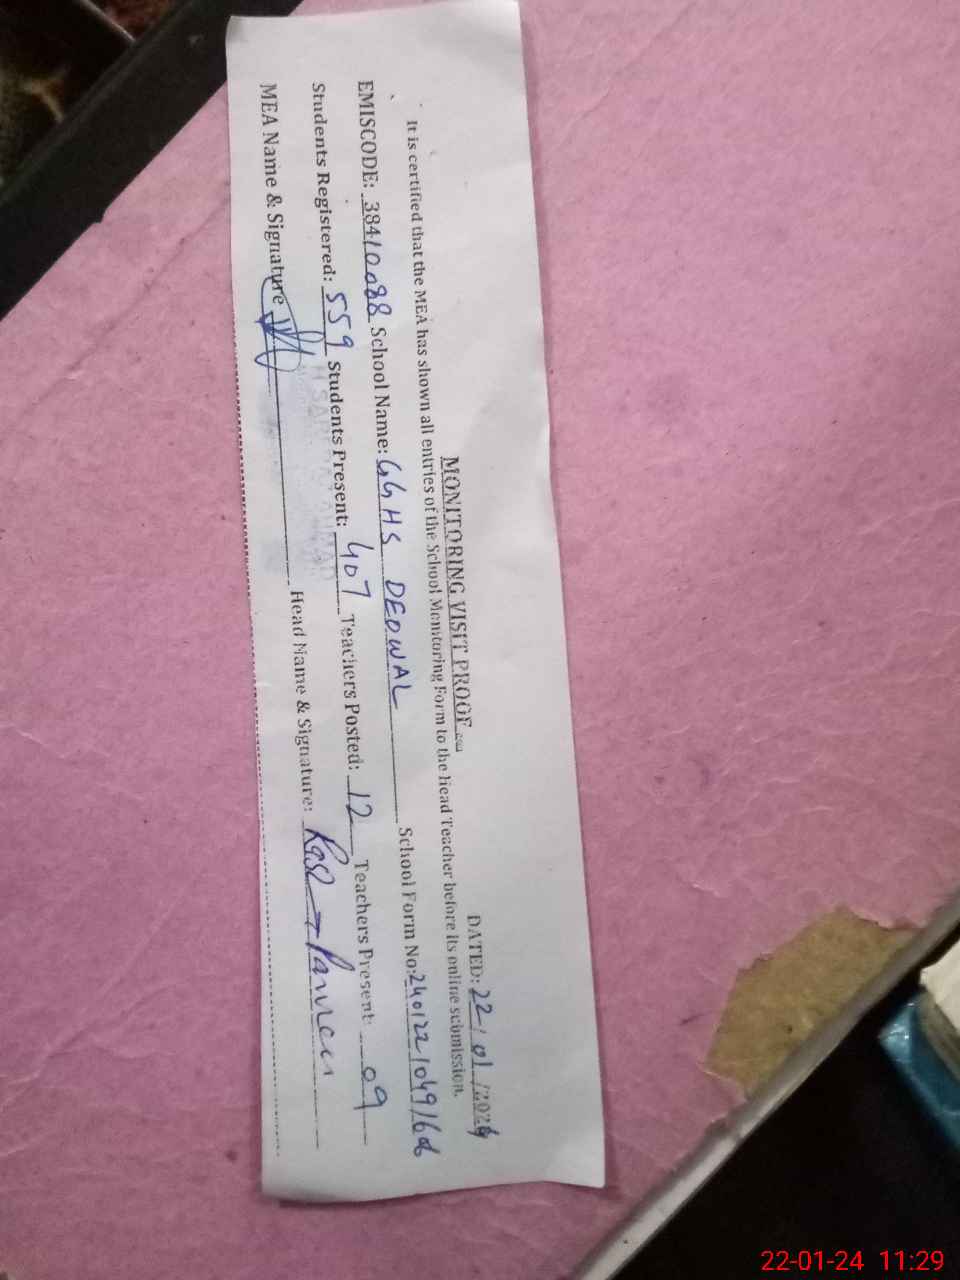 MONITORING VISIT PROOF
DATED: 22/01/2024
It is certified that the MEA has shown all entries of the School Monitoring Form to the Head Teacher before its online submission.
EMISCODE: 38410088 School Name: GGHS DEOWAL School Form No:
Students Registered: 559 Students Present: 407 Teachers Posted: 12 Teachers Present: 09
MEA Name & Signature Head Name & Signature: Parveen
22-01-24 11:29